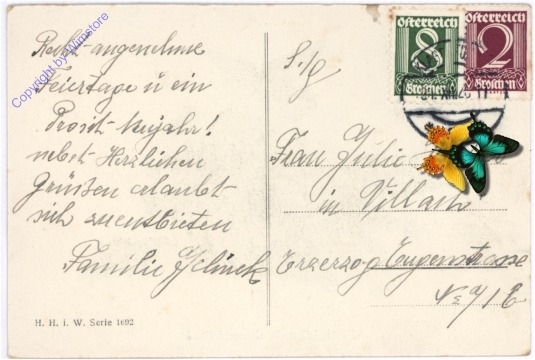 Copyright by Wimstore
Recht angenehme
Feiertage u ein
Prosit-Neujahr!
nebst Herzlichen
Grüßen erlaubt-
sich zu entbieten
Familie Jelinek
H. H. i. W. Serie 1692
Österreich
8
Groschen
Österreich
2
Groschen
S. Ig
Frau Julie
in Villach
Erzerzog Eugenstrasse